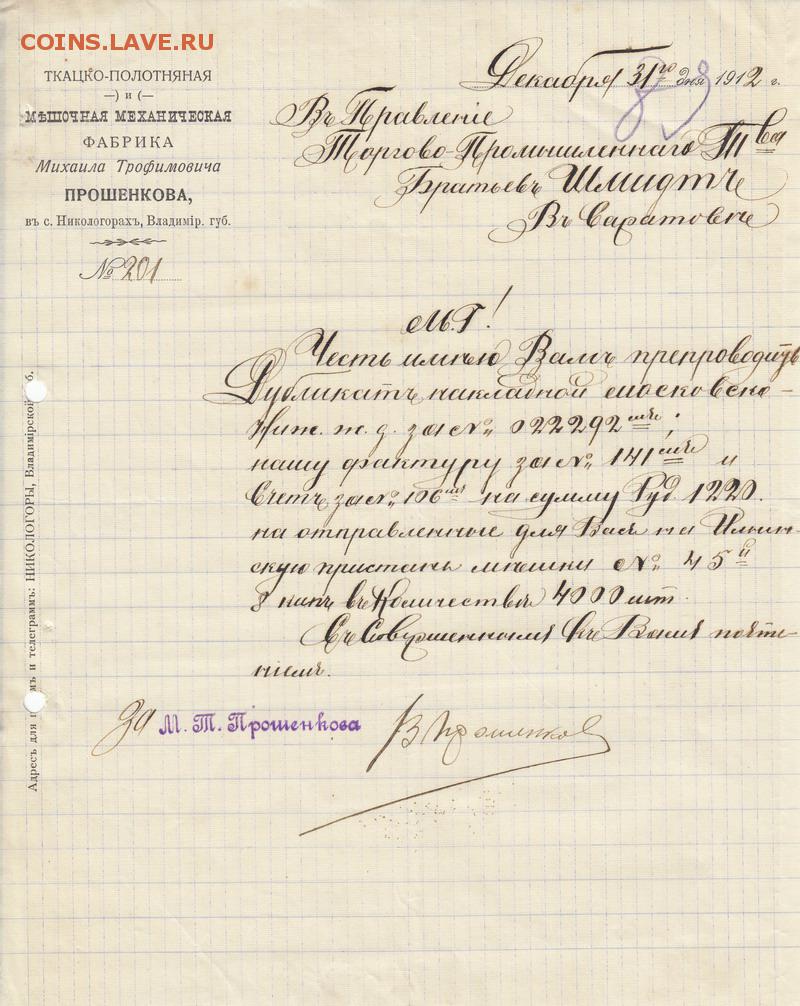 COINS.LAVE.RU
ТКАЦКО-ПОЛОТНЯНАЯ
—) и (—
МѢШОЧНАЯ МЕХАНИЧЕСКАЯ
ФАБРИКА
Михаила Трофимовича
ПРОШЕНКОВА,
въ с. Никологорахъ, Владимір. губ.
№ 201
Декабря 31го дня 1912 г.
Въ Правленіе
Торгово-Промышленнаго Тва
Братьевъ Шмидтъ
Въ Саратовѣ
М.Г!
Честь имѣю Вамъ препроводить
Дубликатъ накладной Московско-
Ниж. ж. д. за № 022292мъ;
нашу фактуру за № 141мъ и
Счетъ за № 106мъ на сумму Руб 1220.
на отправленные для Васъ на Ильин-
скую пристань мѣшки № 45й
въ Количествѣ 4000 шт.
Съ Совершеннымъ Къ Вамъ почте-
ніемъ.
За М. Т. Прошенкова
В Прошенков
Адресъ для и телеграммъ: НИКОЛОГОРЫ, Владимірской